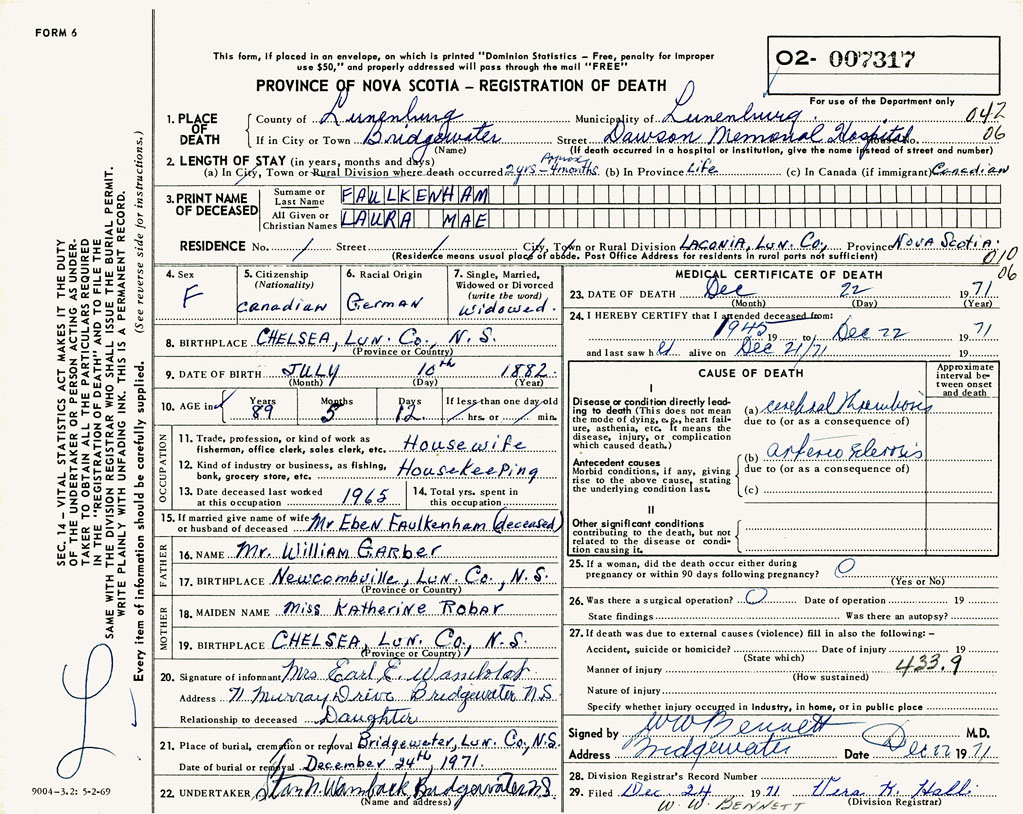 FORM 6
This form, if placed in an envelope, on which is printed "Dominion Statistics – Free, penalty for improper
use $50," and properly addressed will pass through the mail "FREE"
02- 007317
For use of the Department only
PROVINCE OF NOVA SCOTIA – REGISTRATION OF DEATH
1. PLACE OF DEATH County of Lunenburg Municipality of Lunenburg 042
If in City or Town Bridgewater Street Dawson Memorial Hospital 06
(Name) (If death occurred in a hospital or institution, give the name instead of street and number)
2. LENGTH OF STAY (in years, months and days)
(a) In City, Town or Rural Division where death occurred 2yrs – Approx 4 months (b) In Province Life (c) In Canada (if immigrant) Canadian
3. PRINT NAME OF DECEASED Surname or Last Name FAULKENHAM
All Given or Christian Names LAURA MAE
RESIDENCE No. / Street / City, Town or Rural Division LACONIA, LUN. CO. Province NOVA SCOTIA.
(Residence means usual place of abode. Post Office Address for residents in rural parts not sufficient) 010
06
4. Sex F
5. Citizenship (Nationality) Canadian
6. Racial Origin German
7. Single, Married, Widowed or Divorced (write the word) Widowed.
8. BIRTHPLACE CHELSEA, LUN. CO., N.S.
(Province or Country)
9. DATE OF BIRTH JULY 10th 1882
(Month) (Day) (Year)
10. AGE in Years 89 Months 5 Days 12 If less than one day old / hrs. or / min.
OCCUPATION
11. Trade, profession, or kind of work as fisherman, office clerk, sales clerk, etc. Housewife
12. Kind of industry or business, as fishing, bank, grocery store, etc. Housekeeping
13. Date deceased last worked at this occupation 1965
14. Total yrs. spent in this occupation
15. If married give name of wife or husband of deceased Mr Eben Faulkenham (deceased)
FATHER
16. NAME Mr. William Garber
17. BIRTHPLACE Newcombville, Lun. Co., N.S.
(Province or Country)
MOTHER
18. MAIDEN NAME Miss Katherine Robar
19. BIRTHPLACE CHELSEA, Lun. Co., N.S.
(Province or Country)
20. Signature of informant Mrs. Earl E.
Address Murray Drive Bridgewater N.S.
Relationship to deceased Daughter
21. Place of burial, cremation or removal Bridgewater, Lun. Co., N.S.
Date of burial or removal December 24th, 1971.
22. UNDERTAKER Bridgewater N.S.
(Name and address)
MEDICAL CERTIFICATE OF DEATH
23. DATE OF DEATH Dec 22 1971
(Month) (Day) (Year)
24. I HEREBY CERTIFY that I attended deceased from:
1945 19 to Dec 22 71
and last saw h er alive on Dec 21/71 19
CAUSE OF DEATH
Approximate interval between onset and death
I
Disease or condition directly leading to death (This does not mean the mode of dying, e.g., heart failure, asthenia, etc. It means the disease, injury, or complication which caused death.)
(a) cerebral thrombosis
due to (or as a consequence of)
Antecedent causes
Morbid conditions, if any, giving rise to the above cause, stating the underlying condition last.
(b) arterio sclerosis
due to (or as a consequence of)
(c)
II
Other significant conditions contributing to the death, but not related to the disease or condition causing it.
25. If a woman, did the death occur either during pregnancy or within 90 days following pregnancy? 0
(Yes or No)
26. Was there a surgical operation? 0 Date of operation 19
State findings Was there an autopsy?
27. If death was due to external causes (violence) fill in also the following: –
Accident, suicide or homicide? Date of injury 19
(State which) 433.9
Manner of injury
(How sustained)
Nature of injury
Specify whether injury occurred in industry, in home, or in public place
Signed by WW Bennett M.D.
Address Bridgewater Date Dec 22 1971
28. Division Registrar's Record Number
29. Filed Dec. 24 1971 Vera K.
W. W. BENNETT (Division Registrar)
SEC. 14 – VITAL STATISTICS ACT MAKES IT THE DUTY
OF THE UNDERTAKER OR PERSON ACTING AS UNDERTAKER
TO OBTAIN ALL THE PARTICULARS REQUIRED
IN THE "REGISTRATION OF DEATH" AND TO FILE THE
SAME WITH THE DIVISION REGISTRAR WHO SHALL ISSUE THE BURIAL PERMIT.
WRITE PLAINLY WITH UNFADING INK. THIS IS A PERMANENT RECORD.
Every item of Information should be carefully supplied. (See reverse side for instructions.)
9004–3.2: 5-2-69